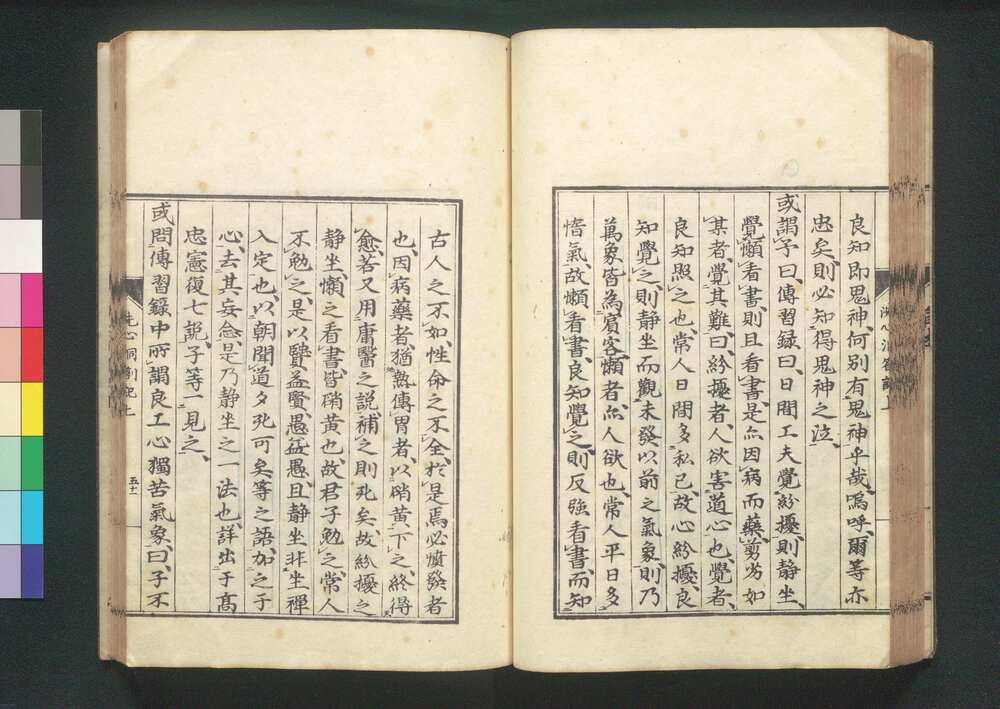 良知即鬼神、何別有鬼神乎哉、嗚呼、爾等亦
忠矣、則必知得鬼神之泣、
或謂予曰、傳習録曰、日間工夫覺紛擾、則静坐、
覺懶看書、則且看書、是亦因病而藥、剪劣如
某者、覺其難、曰紛擾者、人欲害道心也、覺者、
良知照之也、常人日間多私已、故心紛擾、良
知覺之、則静坐而觀未發以前之氣象、則乃
萬象皆為賓客、懶者亦人欲也、常人平日多
惰氣、故懶看書、良知覺之、則反強看書、而知
古人之不如、性命之不全、於是焉必憤發者
也、因病藥者、猶熱傳胃者、以硝黄下之終得
愈、若又用庸醫之説補之則死矣、故紛擾之
静坐懶之看書、皆硝黄也、故君子勉之、常人
不勉之、是以賢益賢、愚益愚、且静坐非坐禪
入定也、以朝聞道夕死可矣等之語、加之于
心、去其妄念、是乃静坐之一法也、詳出于高
忠憲復七説、子等一見之、
或問傳習録中所謂良工心獨苦氣象、曰、子不
洗心洞劄記上
五十一